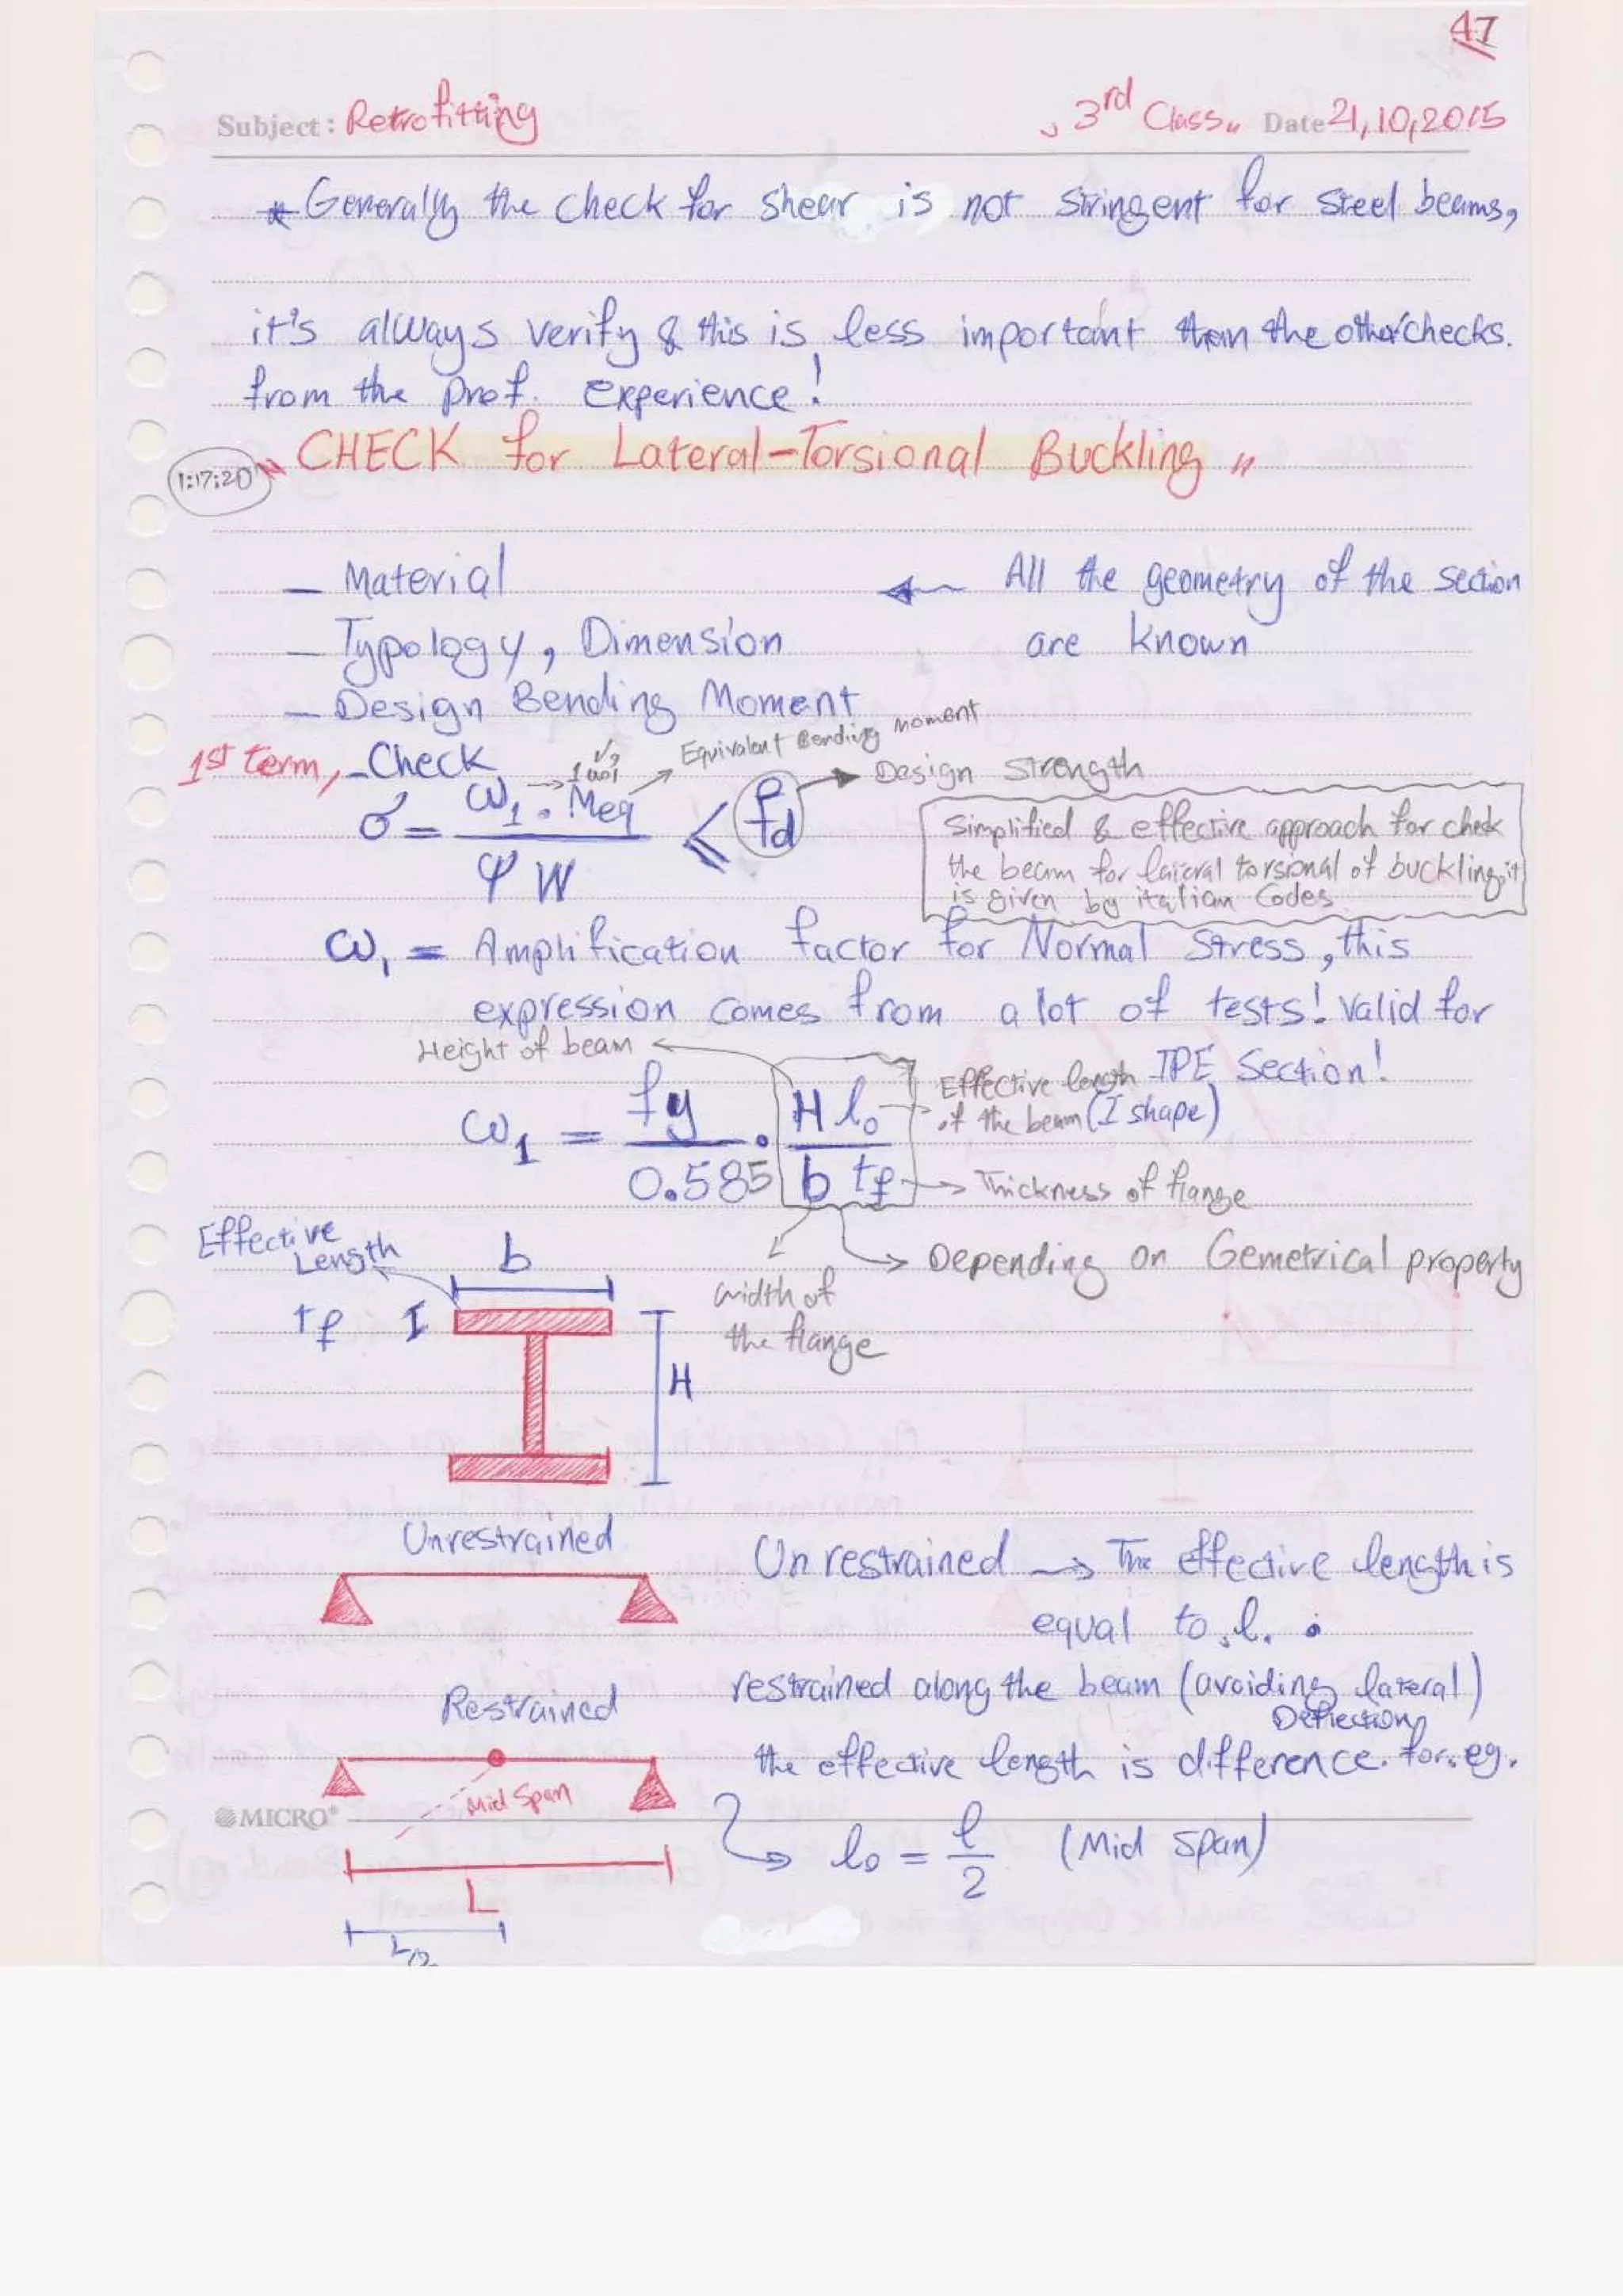 47
Subject: Retrofitting „3rd Class„ Date 21,10,2015
* Generally the check for shear is not stringent for steel beams,
it's always verify & this is less important than the other checks.
from the prof. experience!
1:17:20 „ CHECK for Lateral-Torsional Buckling „
– Material ← All the geometry of the section
– Typology, Dimension are known
– Design Bending Moment
1st term, – Check Equivalent Bending moment
σ = ω1 . Meq / φ W ≤ fd → Design Strength
Simplified & effective approach for check
the beam for lateral torsional of buckling, it
is given by italian Codes
ω1 = Amplification factor for Normal Stress, this
expression comes from a lot of tests! Valid for
Height of beam IPE Section!
Effective length
of the beam (I shape)
ω1 = fy / 0.585 . H l0 / b tf
→ Thickness of flange
Effective
Length b
→ Depending on Gemetrical property
width of
the flange
tf I
H
Unrestrained
Unrestrained → The effective length is
equal to l.
Restrained
restrained along the beam (avoiding lateral)
Deflection
the effective length is difference. for. eg.
Mid Span
MICRO®
→ l0 = l / 2 (Mid Span)
L
L/2